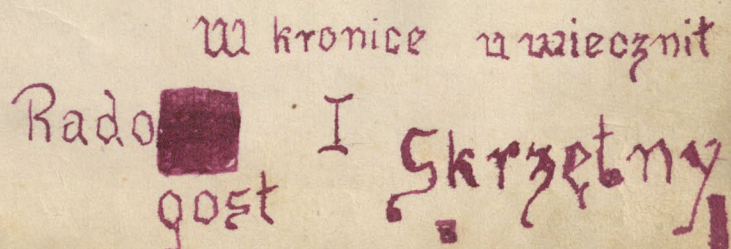 W kronice uwiecznił
Rado I Skrzętny
gost